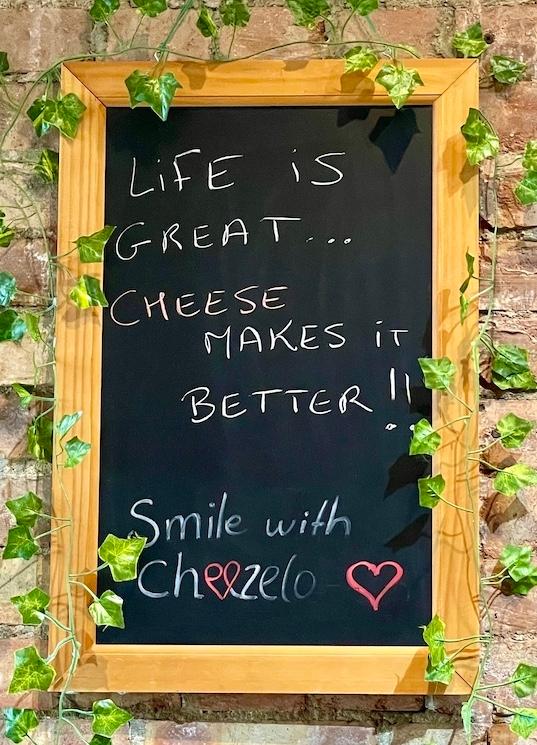 LiFE iS
GREAT...
CHEESE
MAKES iT
BETTER!!
Smile with
Cheezelo